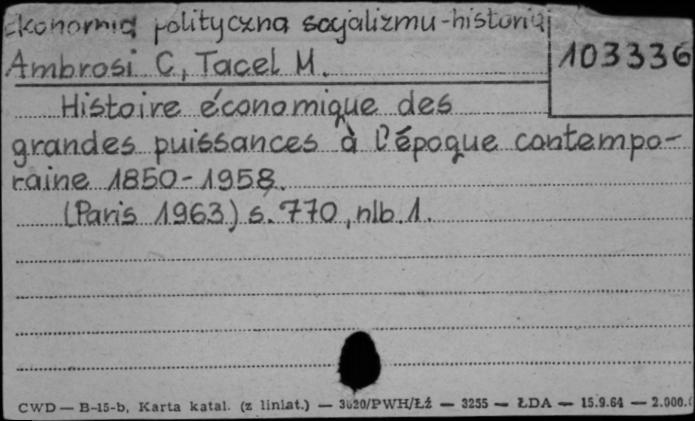 Ekonomia polityczna socjalizmu-historia
103336
Ambrosi C, Tacel M.
Histoire économique des
grandes puissances à l'époque contempo-
raine 1850-1958.
(Paris 1963) s. 770, nlb. 1.
CWD — B-15-b, Karta katal. (z liniat.) — 3620/PWH/Łź — 3255 — ŁDA — 15.9.64 — 2.000.